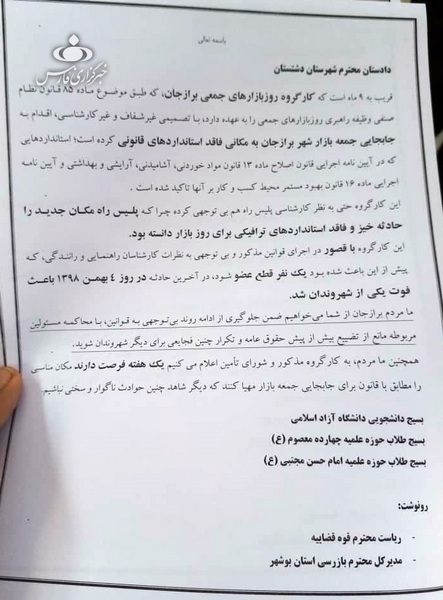 خبرگزاری فارس
باسمه تعالی
دادستان محترم شهرستان دشتستان
قریب به ۹ ماه است که کارگروه روزبازارهای جمعی برازجان، که طبق موضوع ماده ۸۵ قانون نظام
صنفی وظیفه راهبری روزبازارهای جمعی را به عهده دارد، با تصمیمی غیرشفاف و غیرکارشناسی، اقدام به
جابجایی جمعه بازار شهر برازجان به مکانی فاقد استانداردهای قانونی کرده است؛ استانداردهایی
که در آیین نامه اجرایی قانون اصلاح ماده ۱۳ قانون مواد خوردنی، آشامیدنی، آرایشی و بهداشتی و آیین نامه
اجرایی ماده ۱۶ قانون بهبود مستمر محیط کسب و کار بر آنها تاکید شده است.
این کارگروه حتی به نظر کارشناسی پلیس راه هم بی توجهی کرده چرا که پلیس راه مکان جدید را
حادثه خیز و فاقد استانداردهای ترافیکی برای روز بازار دانسته بود.
این کارگروه با قصور در اجرای قوانین مذکور و بی توجهی به نظرات کارشناسان راهنمایی و رانندگی، که
پیش از این باعث شده بود یک نفر قطع عضو شود، در آخرین حادثه در روز ۴ بهمن ۱۳۹۸ باعث
فوت یکی از شهروندان شد.
ما مردم برازجان از شما می‌خواهیم ضمن جلوگیری از ادامه روند بی‌توجهی به قوانین، با محاکمه مسئولین
مربوطه مانع از تضییع بیش از پیش حقوق عامه و تکرار چنین فجایعی برای دیگر شهروندان شوید.
همچنین ما مردم، به کارگروه مذکور و شورای تأمین اعلام می کنیم یک هفته فرصت دارند مکان مناسبی
را مطابق با قانون برای جابجایی جمعه بازار مهیا کنند که دیگر شاهد چنین حوادث ناگوار و سختی نباشیم.
بسیج دانشجویی دانشگاه آزاد اسلامی
بسیج طلاب حوزه علمیه چهارده معصوم (ع)
بسیج طلاب حوزه علمیه امام حسن مجتبی (ع)
رونوشت:
- ریاست محترم قوه قضاییه
- مدیرکل محترم بازرسی استان بوشهر